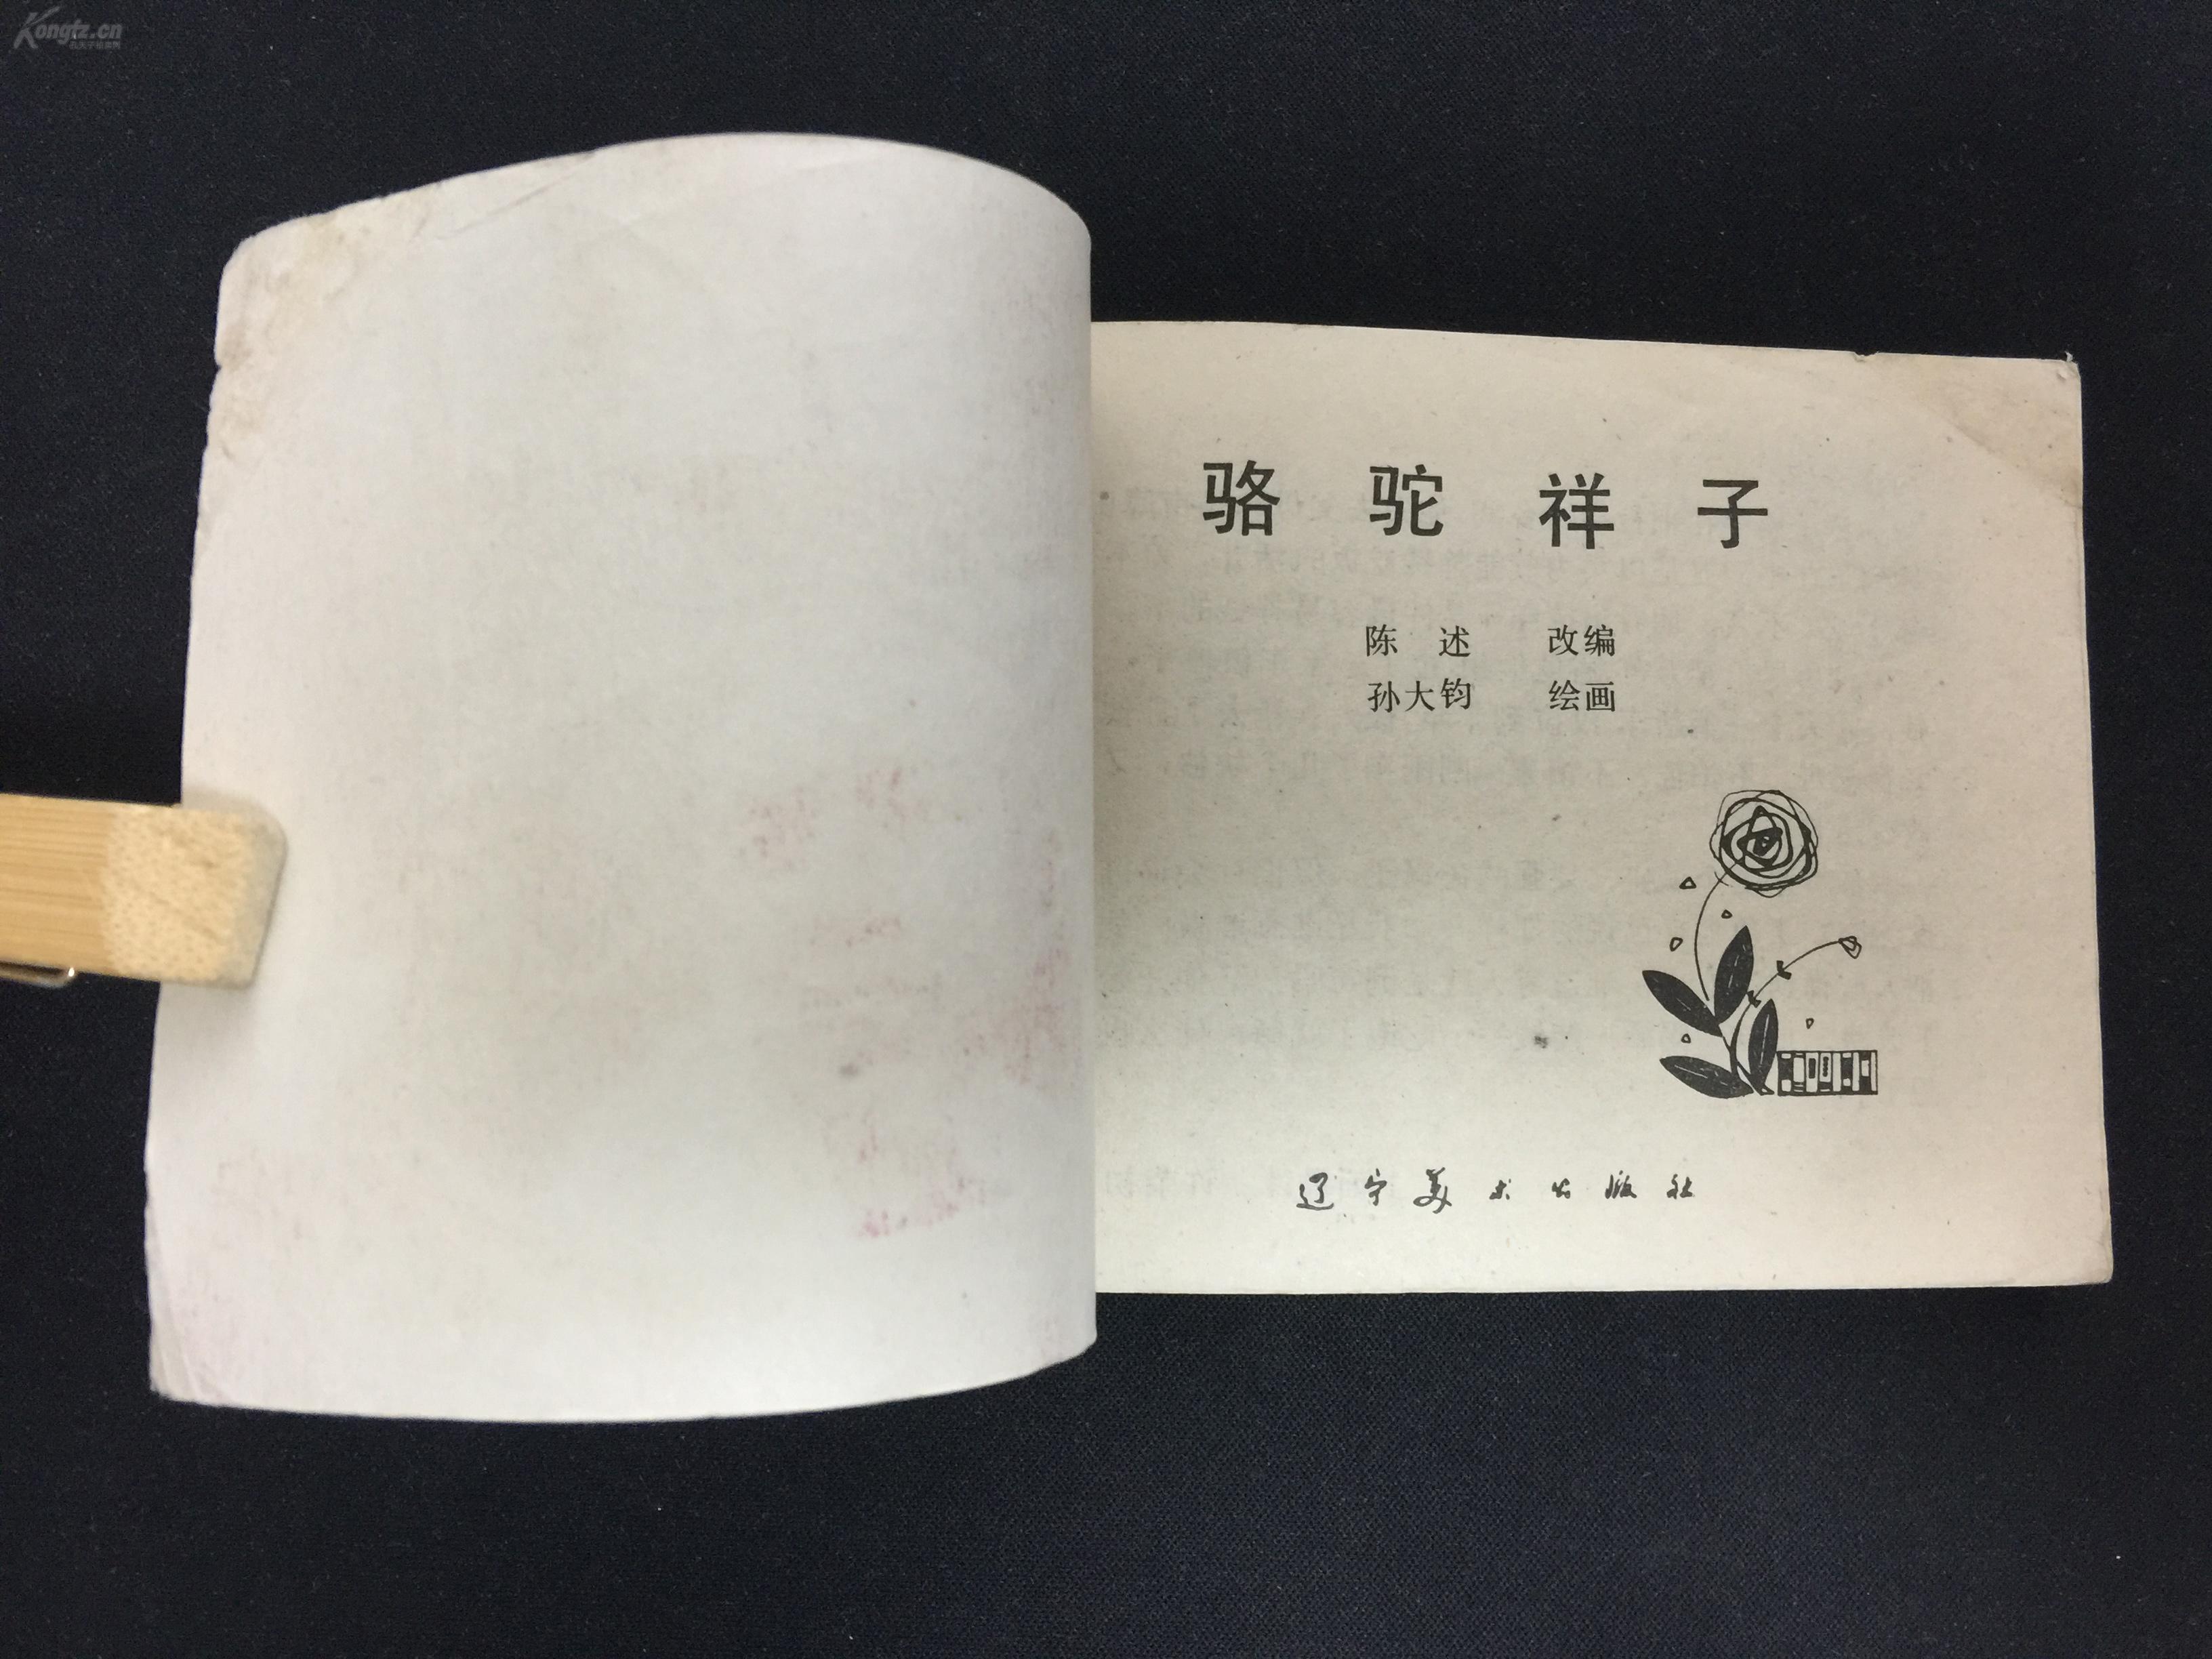 Kongfz.cn
骆驼祥子
陈述 改编
孙大钧 绘画
辽宁美术出版社